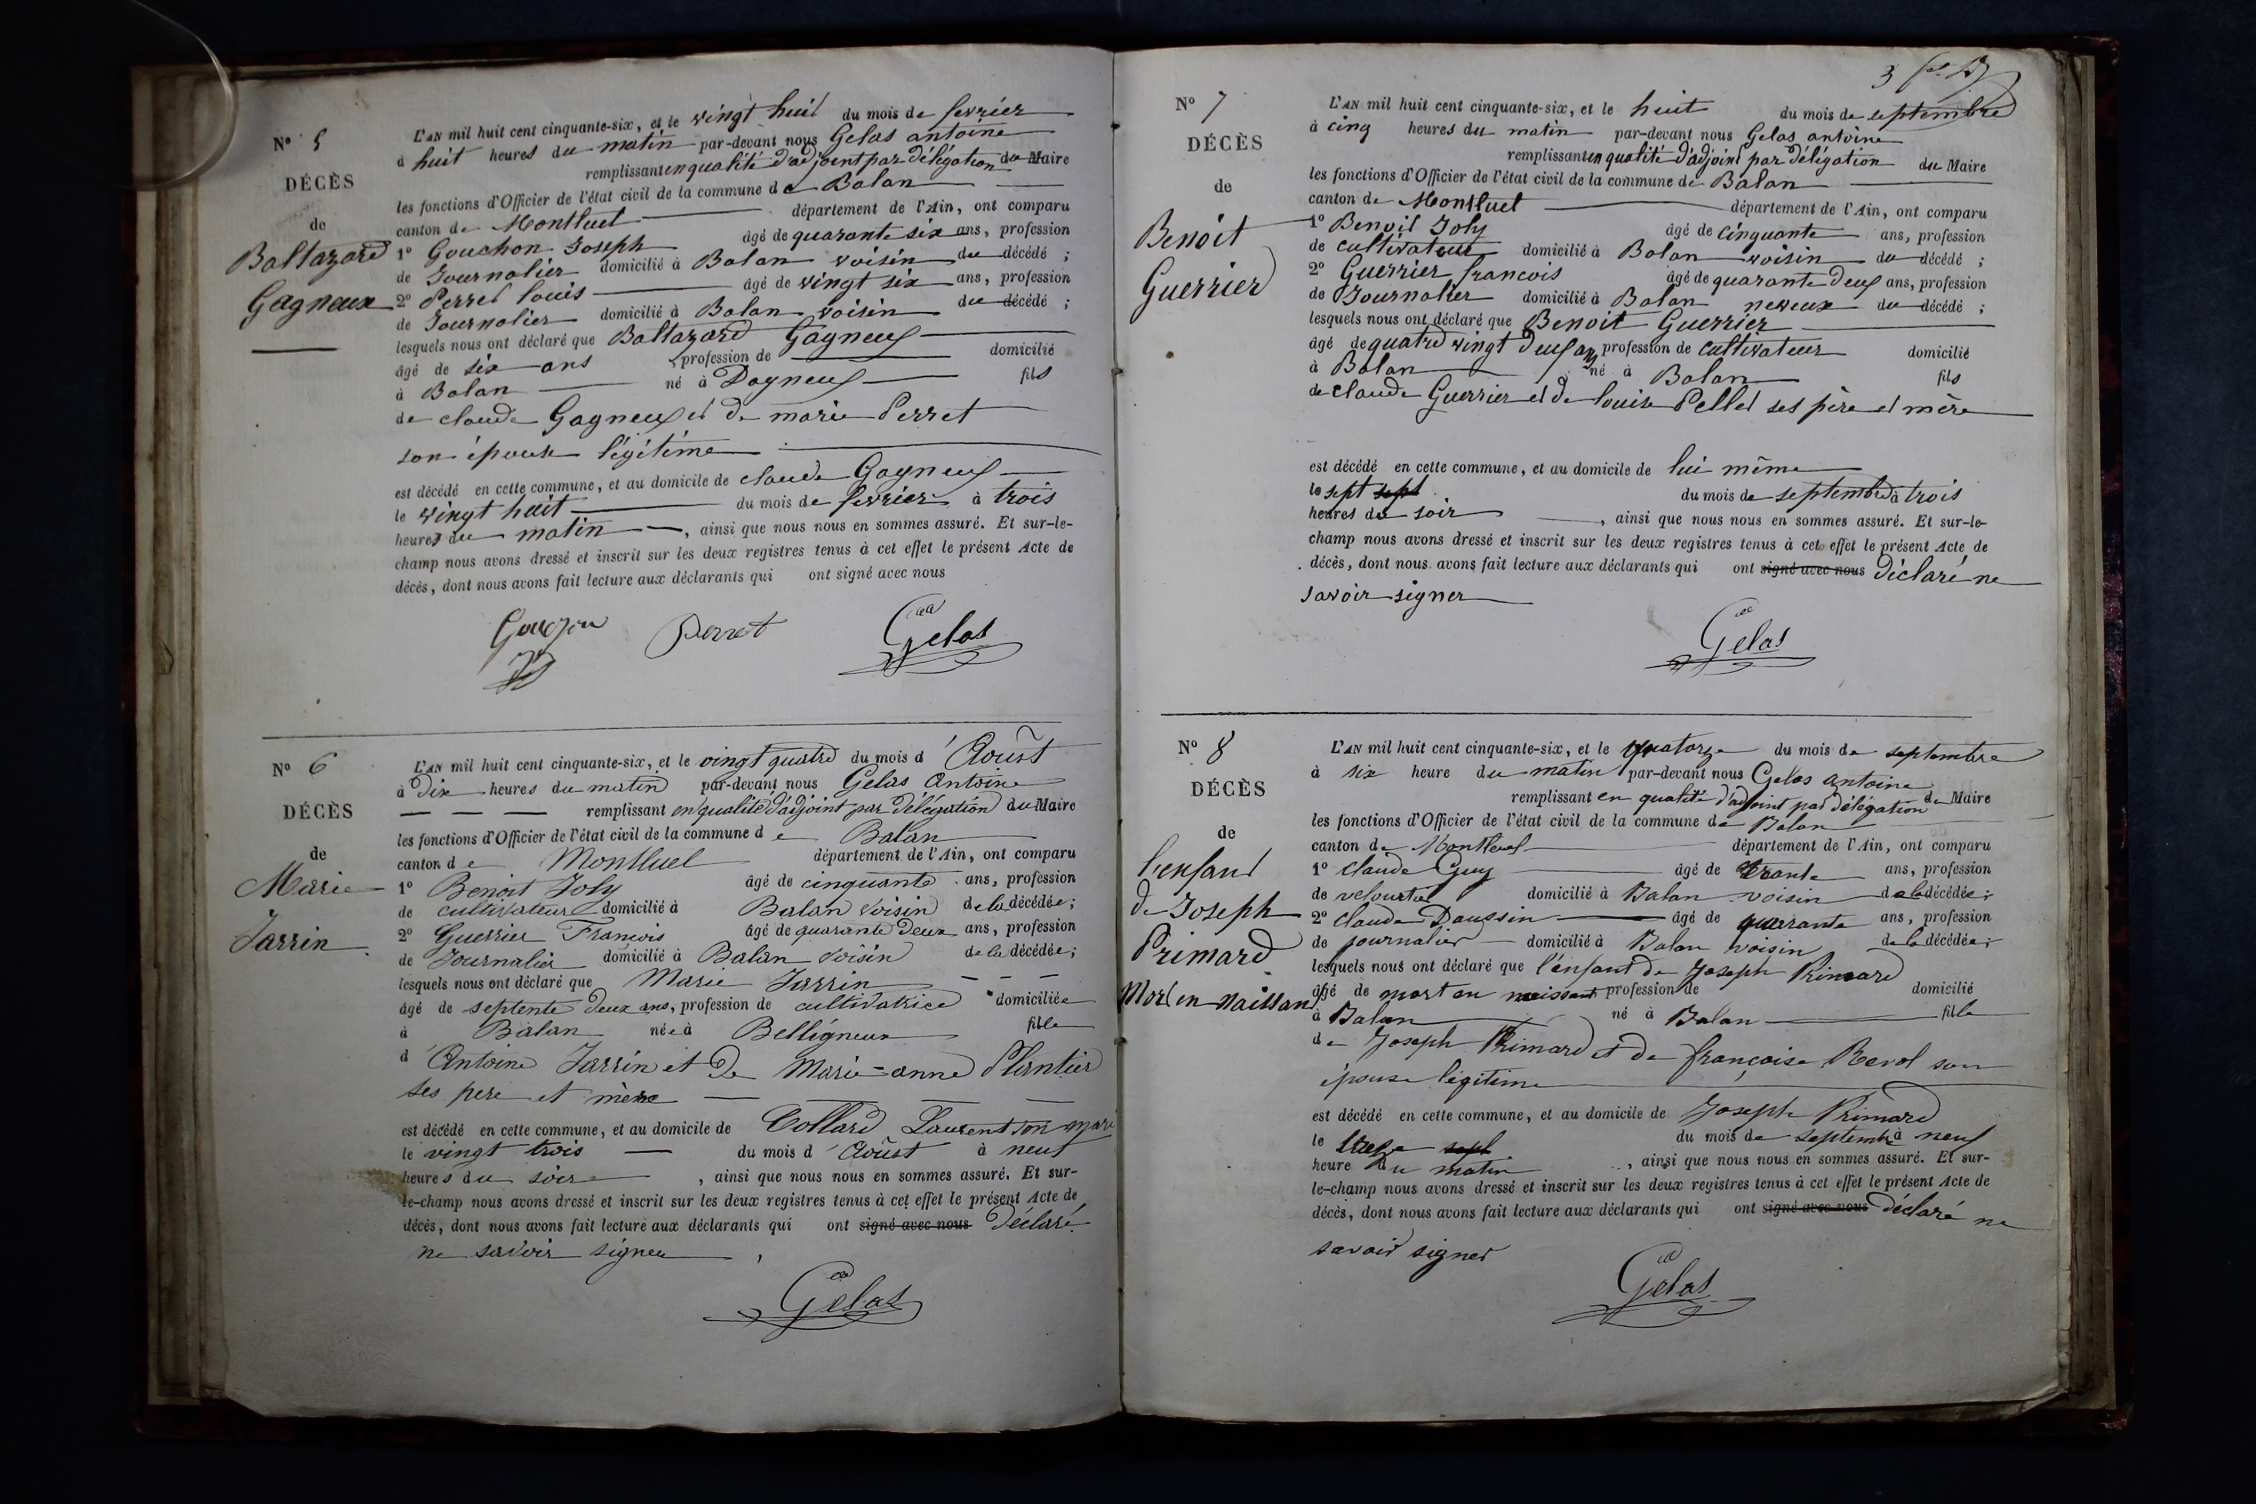 Nº 5
DÉCÈS
de
Baltazard
Gagneux
L'AN mil huit cent cinquante-six, et le vingt huit du mois de fevrier
à huit heures du matin par-devant nous Gelas antoine
remplissant en qualité d'adjoint par délégation du Maire
les fonctions d'Officier de l'état civil de la commune de Balan
canton de Montluel département de l'Ain, ont comparu
1º Gouchon Joseph âgé de quarante six ans, profession
de Journalier domicilié à Balan voisin du décédé ;
2º Perret louis âgé de vingt six ans, profession
de Journalier domicilié à Balan voisin du décédé ;
lesquels nous ont déclaré que Baltazard Gagneux
âgé de six ans profession de domicilié
à Balan né à Dagneux fils
de claude Gagneux et de marie Perret
son épouse légitime
est décédé en cette commune, et au domicile de claude Gagneux
le vingt huit du mois de fevrier à trois
heures du matin, ainsi que nous nous en sommes assuré. Et sur-le-
champ nous avons dressé et inscrit sur les deux registres tenus à cet effet le présent Acte de
décès, dont nous avons fait lecture aux déclarants qui ont signé avec nous
Perret Gelas
Nº 6
DÉCÈS
de
Marie
Jarrin
L'AN mil huit cent cinquante-six, et le vingt quatre du mois d'Août
à dix heures du matin par-devant nous Gelas Antoine
remplissant en qualité d'adjoint par délégation du Maire
les fonctions d'Officier de l'état civil de la commune de Balan
canton de Montluel département de l'Ain, ont comparu
1º Benoit Joly âgé de cinquante ans, profession
de cultivateur domicilié à Balan voisin de la décédée ;
2º Guerrier Francois âgé de quarante deux ans, profession
de Journalier domicilié à Balan voisin de la décédée ;
lesquels nous ont déclaré que Marie Jarrin
âgé de septente deux ans, profession de cultivatrice domiciliée
à Balan née à Belligneux fille
d'Antoine Jarrin et de Marie-anne Plantier
ses pere et mère
est décédé en cette commune, et au domicile de Collard Laurent son mari
le vingt trois du mois d'Août à neuf
heures du soire, ainsi que nous nous en sommes assuré. Et sur-
le-champ nous avons dressé et inscrit sur les deux registres tenus à cet effet le présent Acte de
décès, dont nous avons fait lecture aux déclarants qui ont signé avec nous déclaré
ne savoir signer
Gelas
3
Nº 7
DÉCÈS
de
Benoit
Guerrier
L'AN mil huit cent cinquante-six, et le huit du mois de septembre
à cinq heures du matin par-devant nous Gelas antoine
remplissant en qualité d'adjoint par délégation du Maire
les fonctions d'Officier de l'état civil de la commune de Balan
canton de Montluel département de l'Ain, ont comparu
1º Benoit Joly âgé de cinquante ans, profession
de cultivateur domicilié à Balan voisin du décédé ;
2º Guerrier francois âgé de quarante deux ans, profession
de Journalier domicilié à Balan neveux du décédé ;
lesquels nous ont déclaré que Benoit Guerrier
âgé de quatre vingt deux ans profession de cultivateur domicilié
à Balan né à Balan fils
de claude Guerrier et de louise Pellet ses père et mère
est décédé en cette commune, et au domicile de lui même
le sept sept du mois de septembre à trois
heures du soir, ainsi que nous nous en sommes assuré. Et sur-le-
champ nous avons dressé et inscrit sur les deux registres tenus à cet effet le présent Acte de
décès, dont nous avons fait lecture aux déclarants qui ont signé avec nous déclaré ne
savoir signer
Gelas
Nº 8
DÉCÈS
de
l'enfant
de Joseph
Primard
Mort en Naissant
L'AN mil huit cent cinquante-six, et le quatorze du mois de septembre
à six heure du matin par-devant nous Gelas antoine
remplissant en qualité d'adjoint par délégation du Maire
les fonctions d'Officier de l'état civil de la commune de Balan
canton de Montluel département de l'Ain, ont comparu
1º claude Guy âgé de trante ans, profession
de veloutier domicilié à Balan voisin de la décédée ;
2º claude Daussin âgé de quarrante ans, profession
de journalier domicilié à Balan voisin de la décédée ;
lesquels nous ont déclaré que l'enfant de Joseph Primard
âgé de mort en naissant profession de domicilié
à Balan né à Balan fille
de Joseph Primard et de françoise Revol son
épouse légitime
est décédé en cette commune, et au domicile de Joseph Primard
le treize sept du mois de septembre à neuf
heure du matin, ainsi que nous nous en sommes assuré. Et sur-
le-champ nous avons dressé et inscrit sur les deux registres tenus à cet effet le présent Acte de
décès, dont nous avons fait lecture aux déclarants qui ont signé avec nous déclaré ne
savoir signer
Gelas